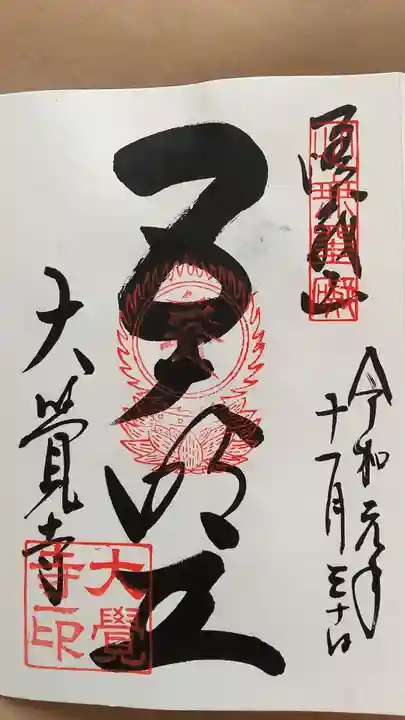 令和元年
十一月三十日
五大明王
大覺寺
大覺
寺印